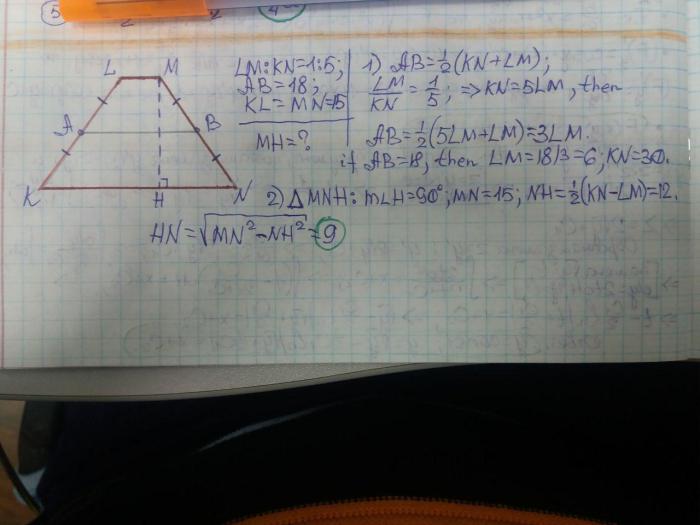 5
4
L M
A B
K H N
LM:KN=1:5;
AB=18;
KL=MN=15
MH=?
1) AB=½(KN+LM);
LM/KN=1/5; ⇒KN=5LM, then
AB=½(5LM+LM)=3LM.
if AB=18, then LM=18/3=6; KN=30.
2) △MNH: m∠H=90°; MN=15; NH=½(KN-LM)=12.
HN=√(MN²-NH²)=9